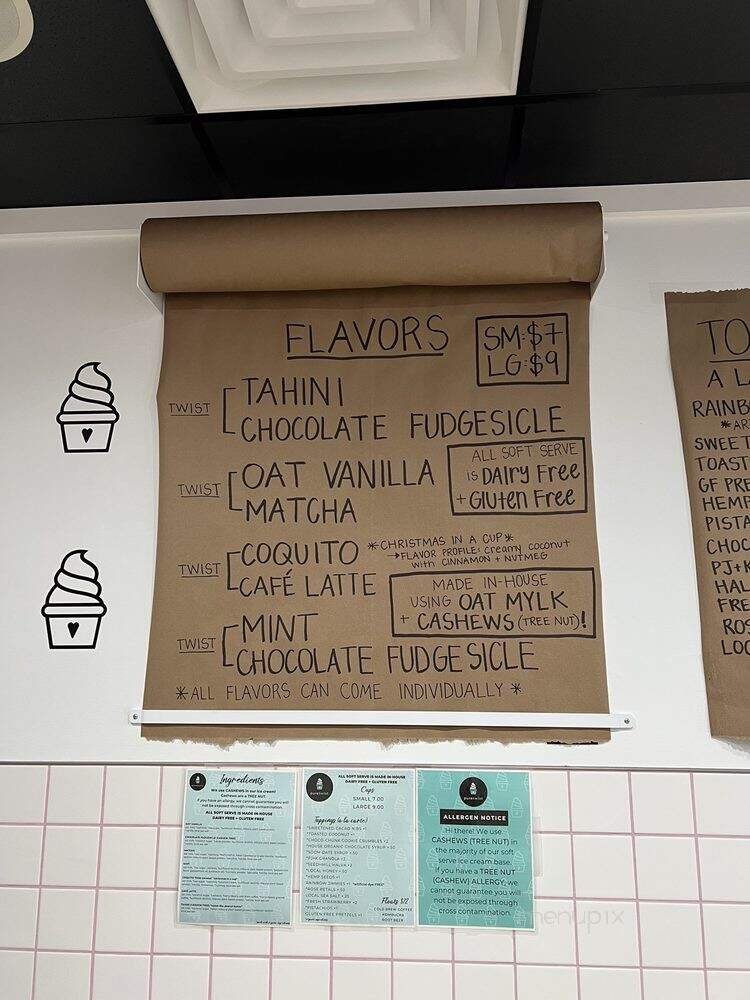 FLAVORS
SM:$7
LG:$9
TWIST
TAHINI
CHOCOLATE FUDGESICLE
ALL SOFT SERVE
IS DAIRY FREE
+ GLUTEN FREE
TWIST
OAT VANILLA
MATCHA
TWIST
COQUITO
*CHRISTMAS IN A CUP*
→FLAVOR PROFILE: CREAMY COCONUT
WITH CINNAMON + NUTMEG
CAFÉ LATTE
MADE IN-HOUSE
USING OAT MYLK
+ CASHEWS (TREE NUT)!
TWIST
MINT
CHOCOLATE FUDGESICLE
*ALL FLAVORS CAN COME INDIVIDUALLY*
TO
A L
RAINB
*AR
SWEET
TOAST
GF PRE
HEMP
PISTA
CHOC
PJ+K
HAL
FRE
ROS
LOC
Ingredients
We use CASHEWS in our ice cream!
Cashews are a TREE NUT.
If you have an allergy, we cannot guarantee you will
not be exposed through cross contamination.
ALL SOFT SERVE IS MADE IN-HOUSE
DAIRY FREE + GLUTEN FREE
ALL SOFT SERVE IS MADE IN-HOUSE
DAIRY FREE + GLUTEN FREE
Cups
SMALL 7.00
LARGE 9.00
Toppings (a la carte)
*SWEETENED CACAO NIBS +1
*TOASTED COCONUT +1
*CHOCO-CHUNK COOKIE CRUMBLES +2
*HOUSE ORGANIC CHOCOLATE SYRUP +.50
*LOCAL HONEY +.50
*HEMP SEEDS +1
RAINBOW JIMMIES +1 *artificial dye FREE*
*ROSE PETALS +.50
*LOCAL SEA SALT +.25
*FRESH STRAWBERRY +2
*PISTACHIOS +1
GLUTEN FREE PRETZELS +1
Floats $12
COLD BREW COFFEE
KOMBUCHA
ROOT BEER
puretwist
ALLERGEN NOTICE
Hi there! We use
CASHEWS (TREE NUT) in
the majority of our soft
serve ice cream base.
If you have a TREE NUT
(CASHEW) ALLERGY, we
cannot guarantee you will
not be exposed through
cross contamination.
menupix